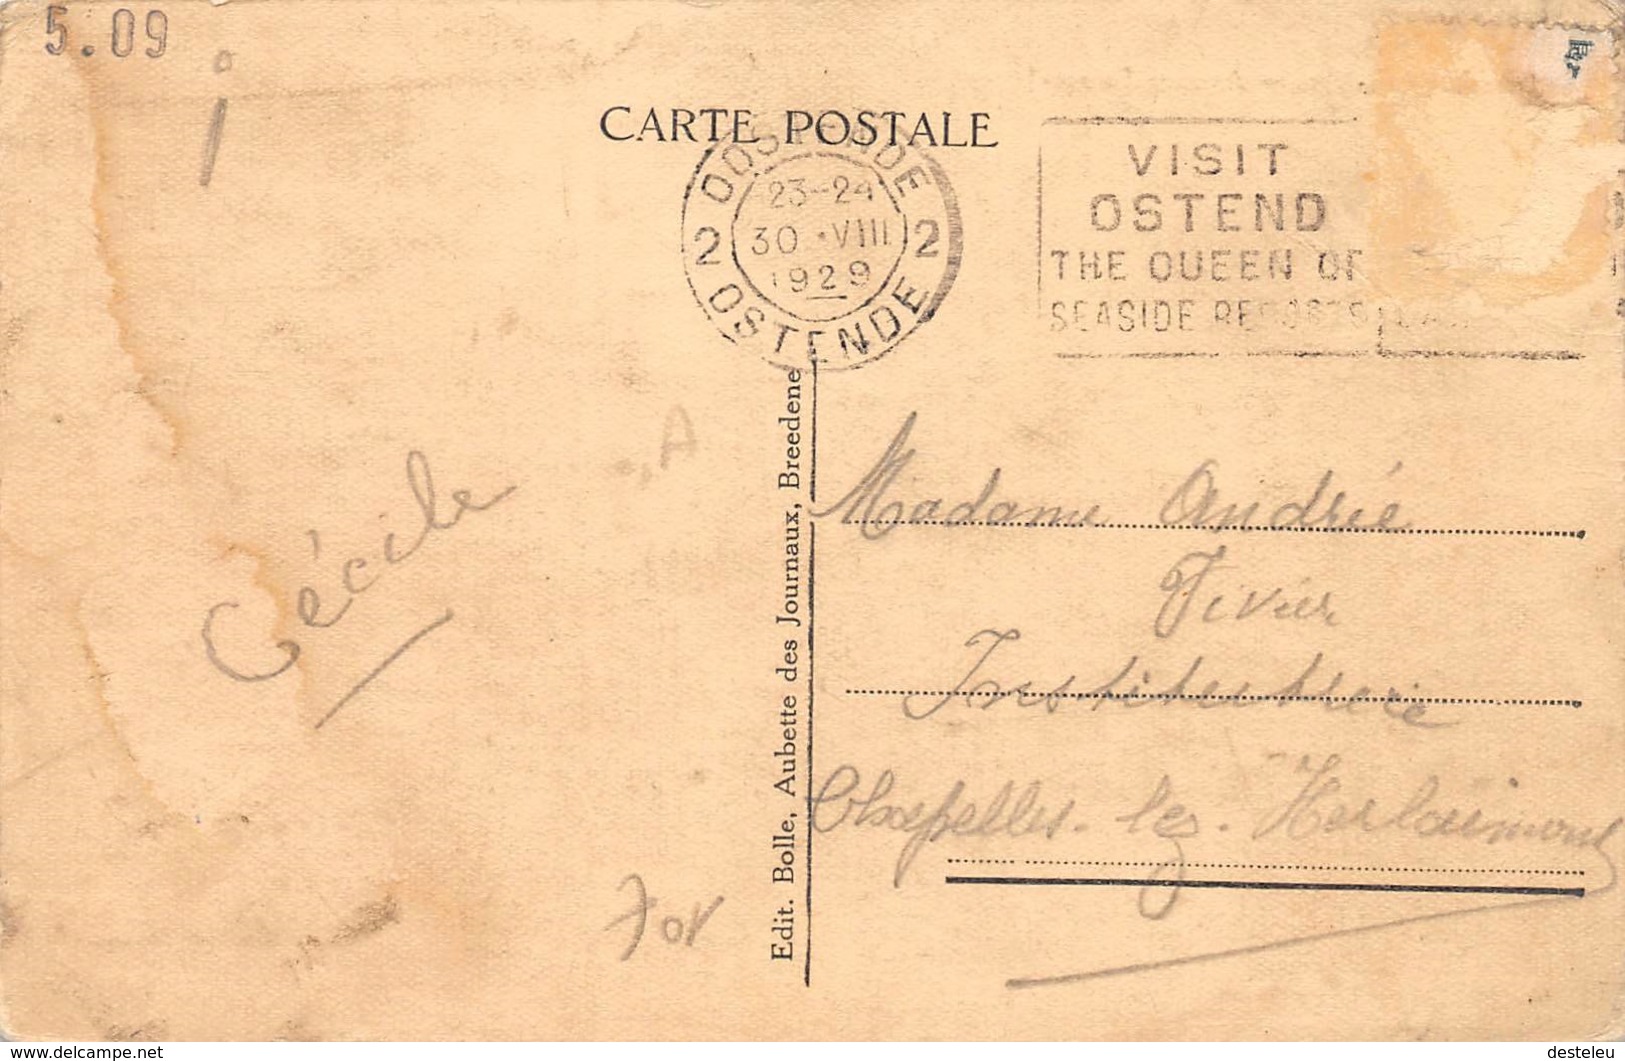 5.09
CARTE POSTALE
OOSTENDE
23-24
2 30 VIII 2
1929
OSTENDE
VISIT
OSTEND
THE QUEEN OF
SEASIDE RESORTS
A
Cécile
Edit. Bolle, Aubette des Journaux, Breedene
Madame Andrée
Vivier
Institutrice
Chapelles-lez-Herlaimont
www.delcampe.net
desteleu